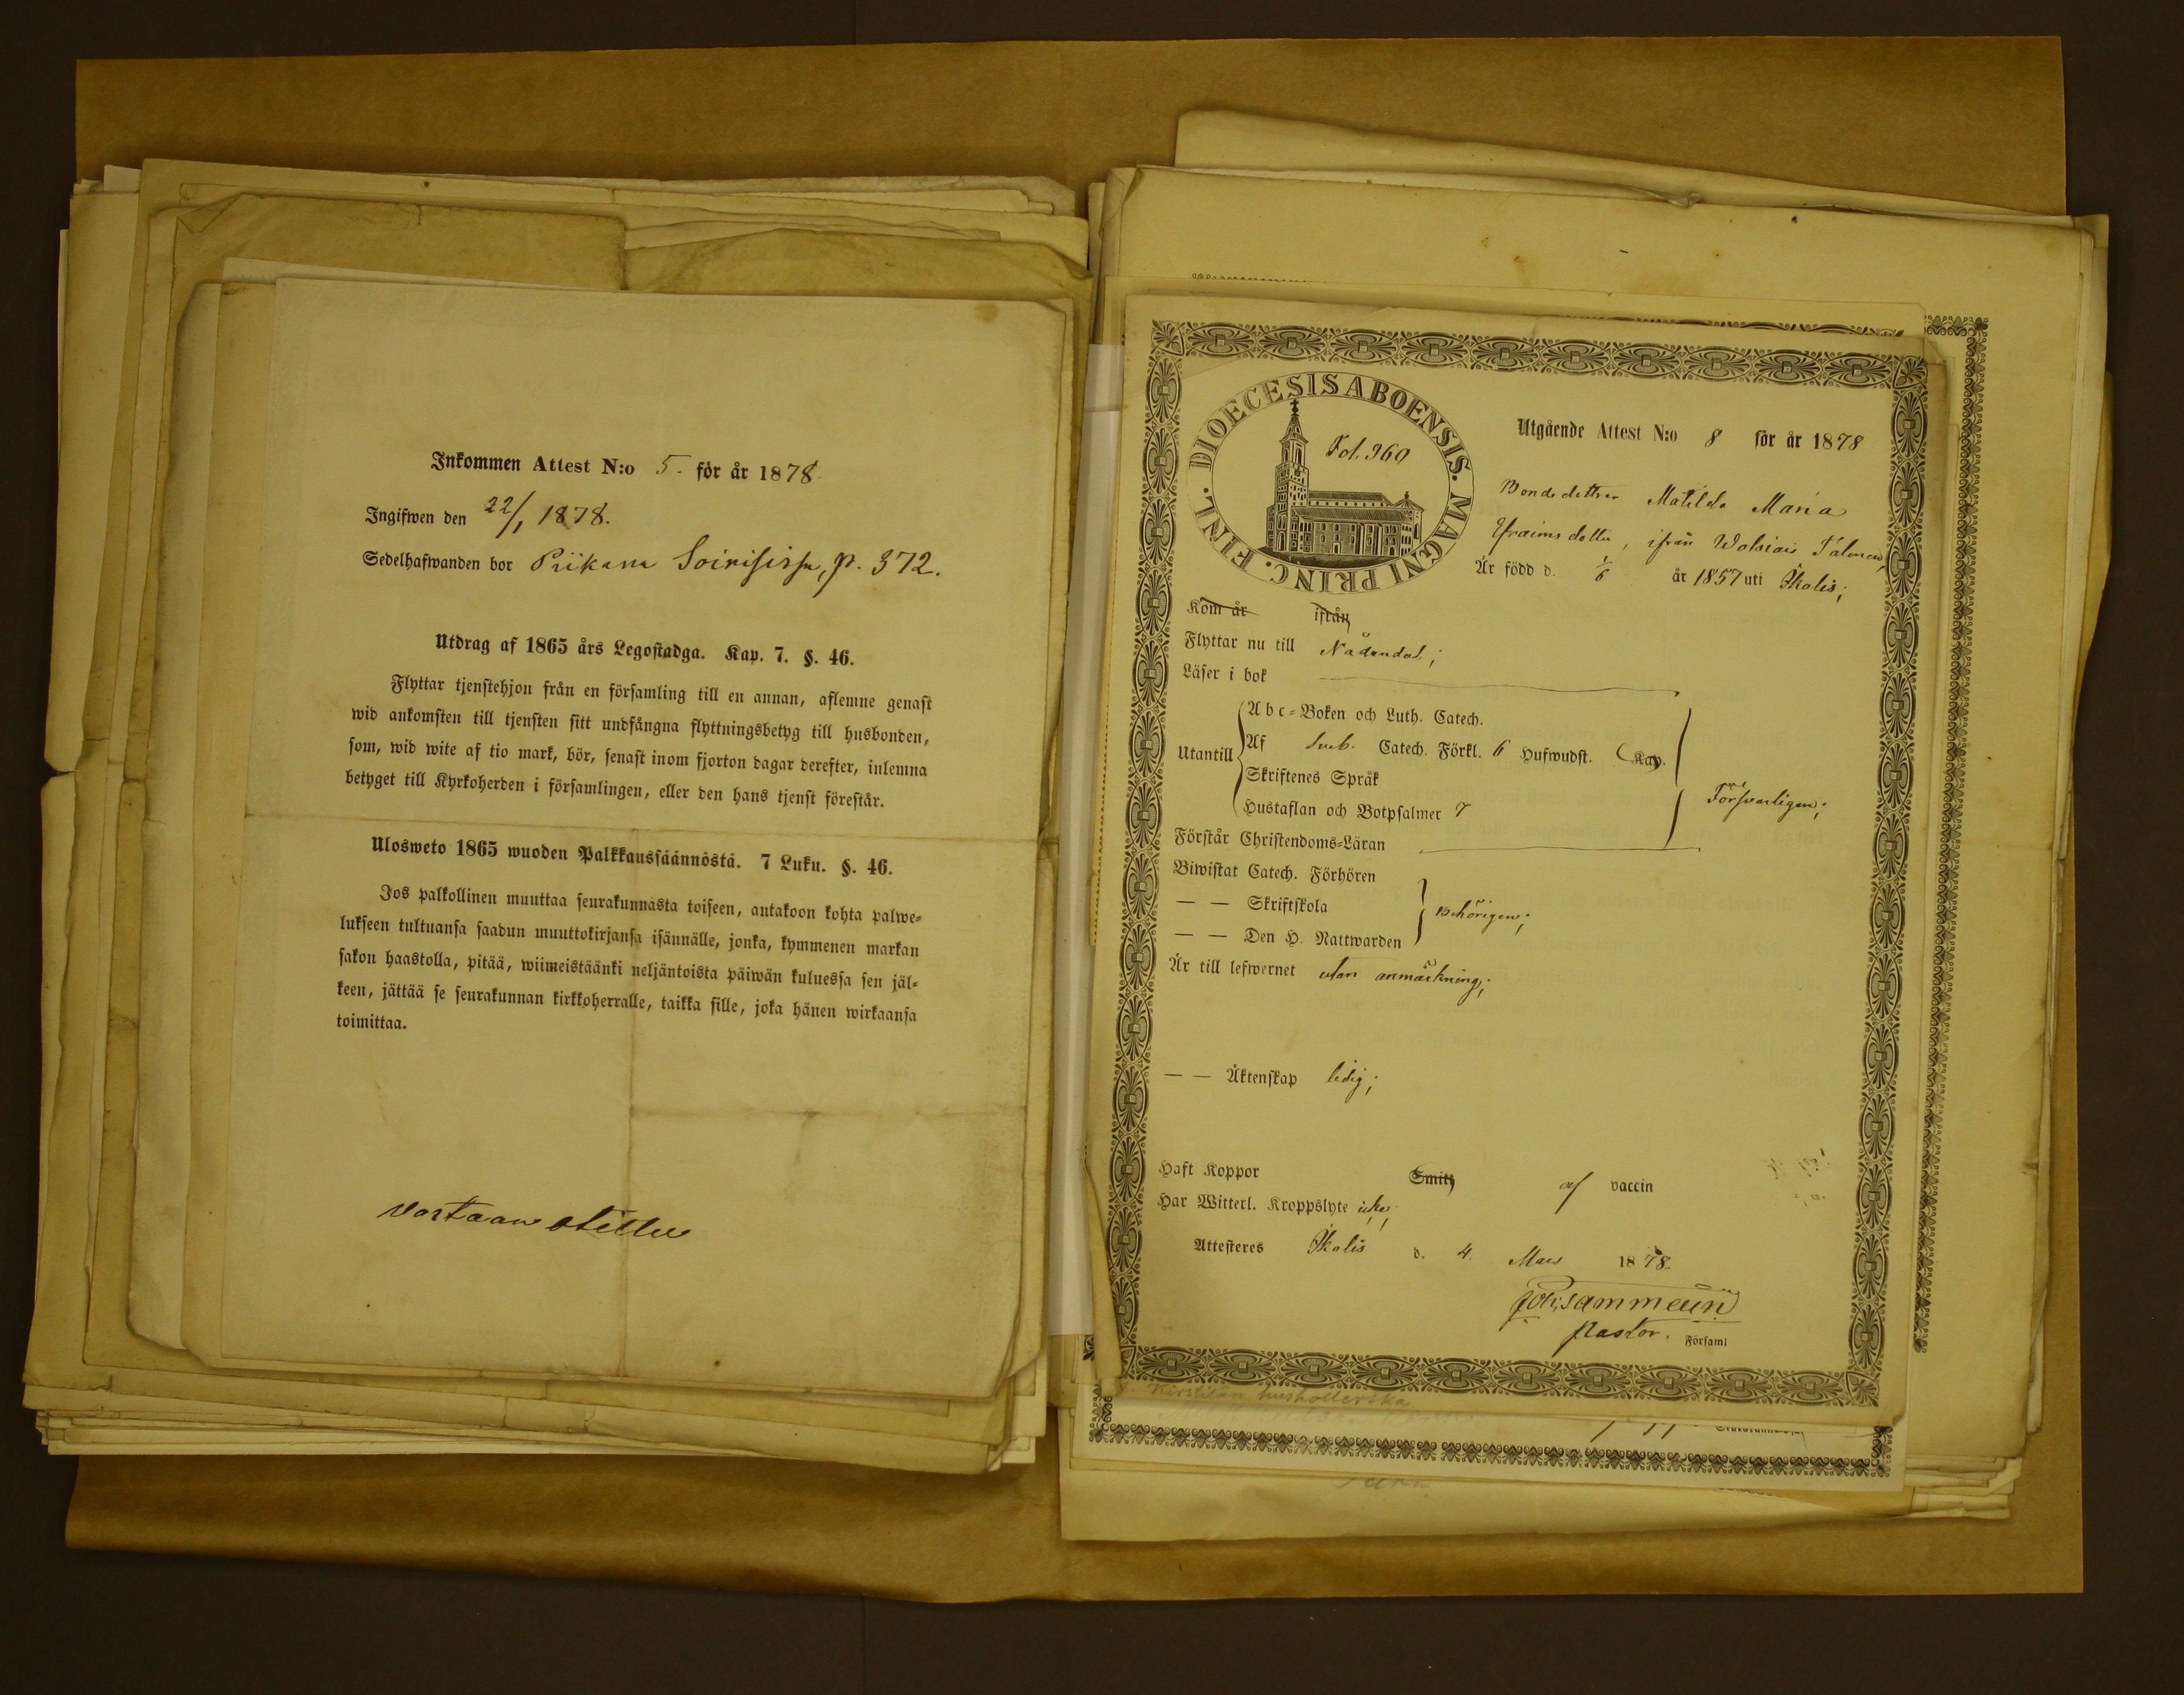 Inkommen Attest N:o 5. för år 1878
Ingifwen den 22/1 1878.
Sedelhafwanden bor Piikana Soinisissa, p. 372.
Utdrag af 1865 års Legostadga. Kap. 7. §. 46.
Flyttar tjenstehjon från en församling till en annan, aflemne genast
wid ankomsten till tjensten sitt undfångna flyttningsbetyg till husbonden,
som, wid wite af tio mark, bör, senast inom fjorton dagar derefter, inlemna
betyget till Kyrkoherden i församlingen, eller den hans tjenst förestår.
Ulosweto 1865 wuoden Palkkaussäännöstä. 7 Luku. §. 46.
Jos palkollinen muuttaa seurakunnasta toiseen, antakoon kohta palwe-
lukseen tultuansa saadun muuttokirjansa isännälle, jonka, kymmenen markan
sakon haastolla, pitää, wiimeistäänki neljäntoista päiwän kuluessa sen jäl-
keen, jättää se seurakunnan kirkkoherralle, taikka sille, joka hänen wirkaansa
toimittaa.
DIOECESIS ABOENSIS. MAGNI PRINC. FINL.
Fol. 969
Utgående Attest N:o 8 för år 1878
Bondedottren Matilda Maria
Efraimsdotter, ifrån
Är född d. 1/6 år 1857 uti Ikalis;
Kom år ifrån
Flyttar nu till Nådendal;
Läser i bok
Utantill
Abc-Boken och Luth. Catech.
Af Sveb. Catech. Förkl. 6 Hufwudst. Kap.
Skriftenes Språk
Hustaflan och Botpsalmer 7
Försvarligen;
Förstår Christendoms-Läran
Biwistat Catech. Förhören
— — Skriftskola
Behörigen;
— — Den H. Nattwarden
Är till lefwernet utan anmärkning;
— — Äktenskap ledig;
Haft Koppor Smitt af vaccin
Har Witterl. Kroppslyte icke;
Attesteres Ikalis d. 4. Mars 1878.
Pastor. Församl
Kirstilän hushollerska